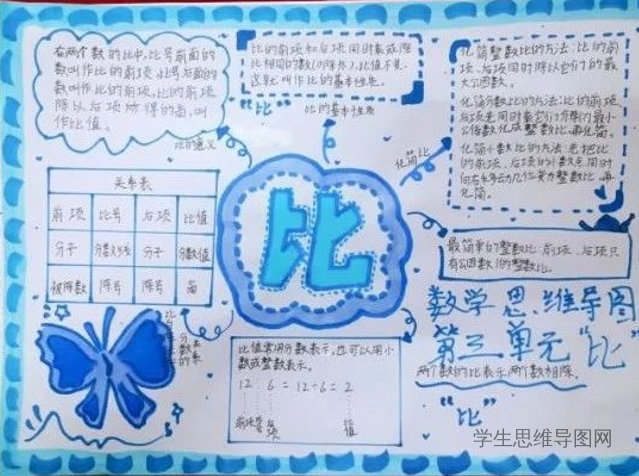 在两个数的比中,比号前面的
数叫作比的前项,比号后面的
数叫作比的后项,比的前项
除以后项所得的商,叫
作比值。
比的意义
比的前项和后项同时乘或除
以相同的数(0除外),比值不变,
这就叫作比的基本性质。
“比”
比的基本性质
化简比
化简整数比的方法:比的前
项、后项同时除以它们的最
大公因数。
化简分数比的方法:比的前项、
后项先同时乘它们分母的最小
公倍数化成整数比,再化简。
化简小数比的方法:先把比
的前项、后项的小数点同时
向右移动几位变为整数比,再
化简。
最简单的整数比:前项、后项只
有公因数1的整数比。
关系表
前项 比号 后项 比值
分子 分数线 分子 分数值
被除数 除号 除号 商
比
数学思维导图
第三单元“比”
两个数的比表示两个数相除。
“比”
比值常用分数表示,也可以用小
数或整数表示。
12 : 6 = 12÷6 = 2
前项 比号 后项 比值
学生思维导图网